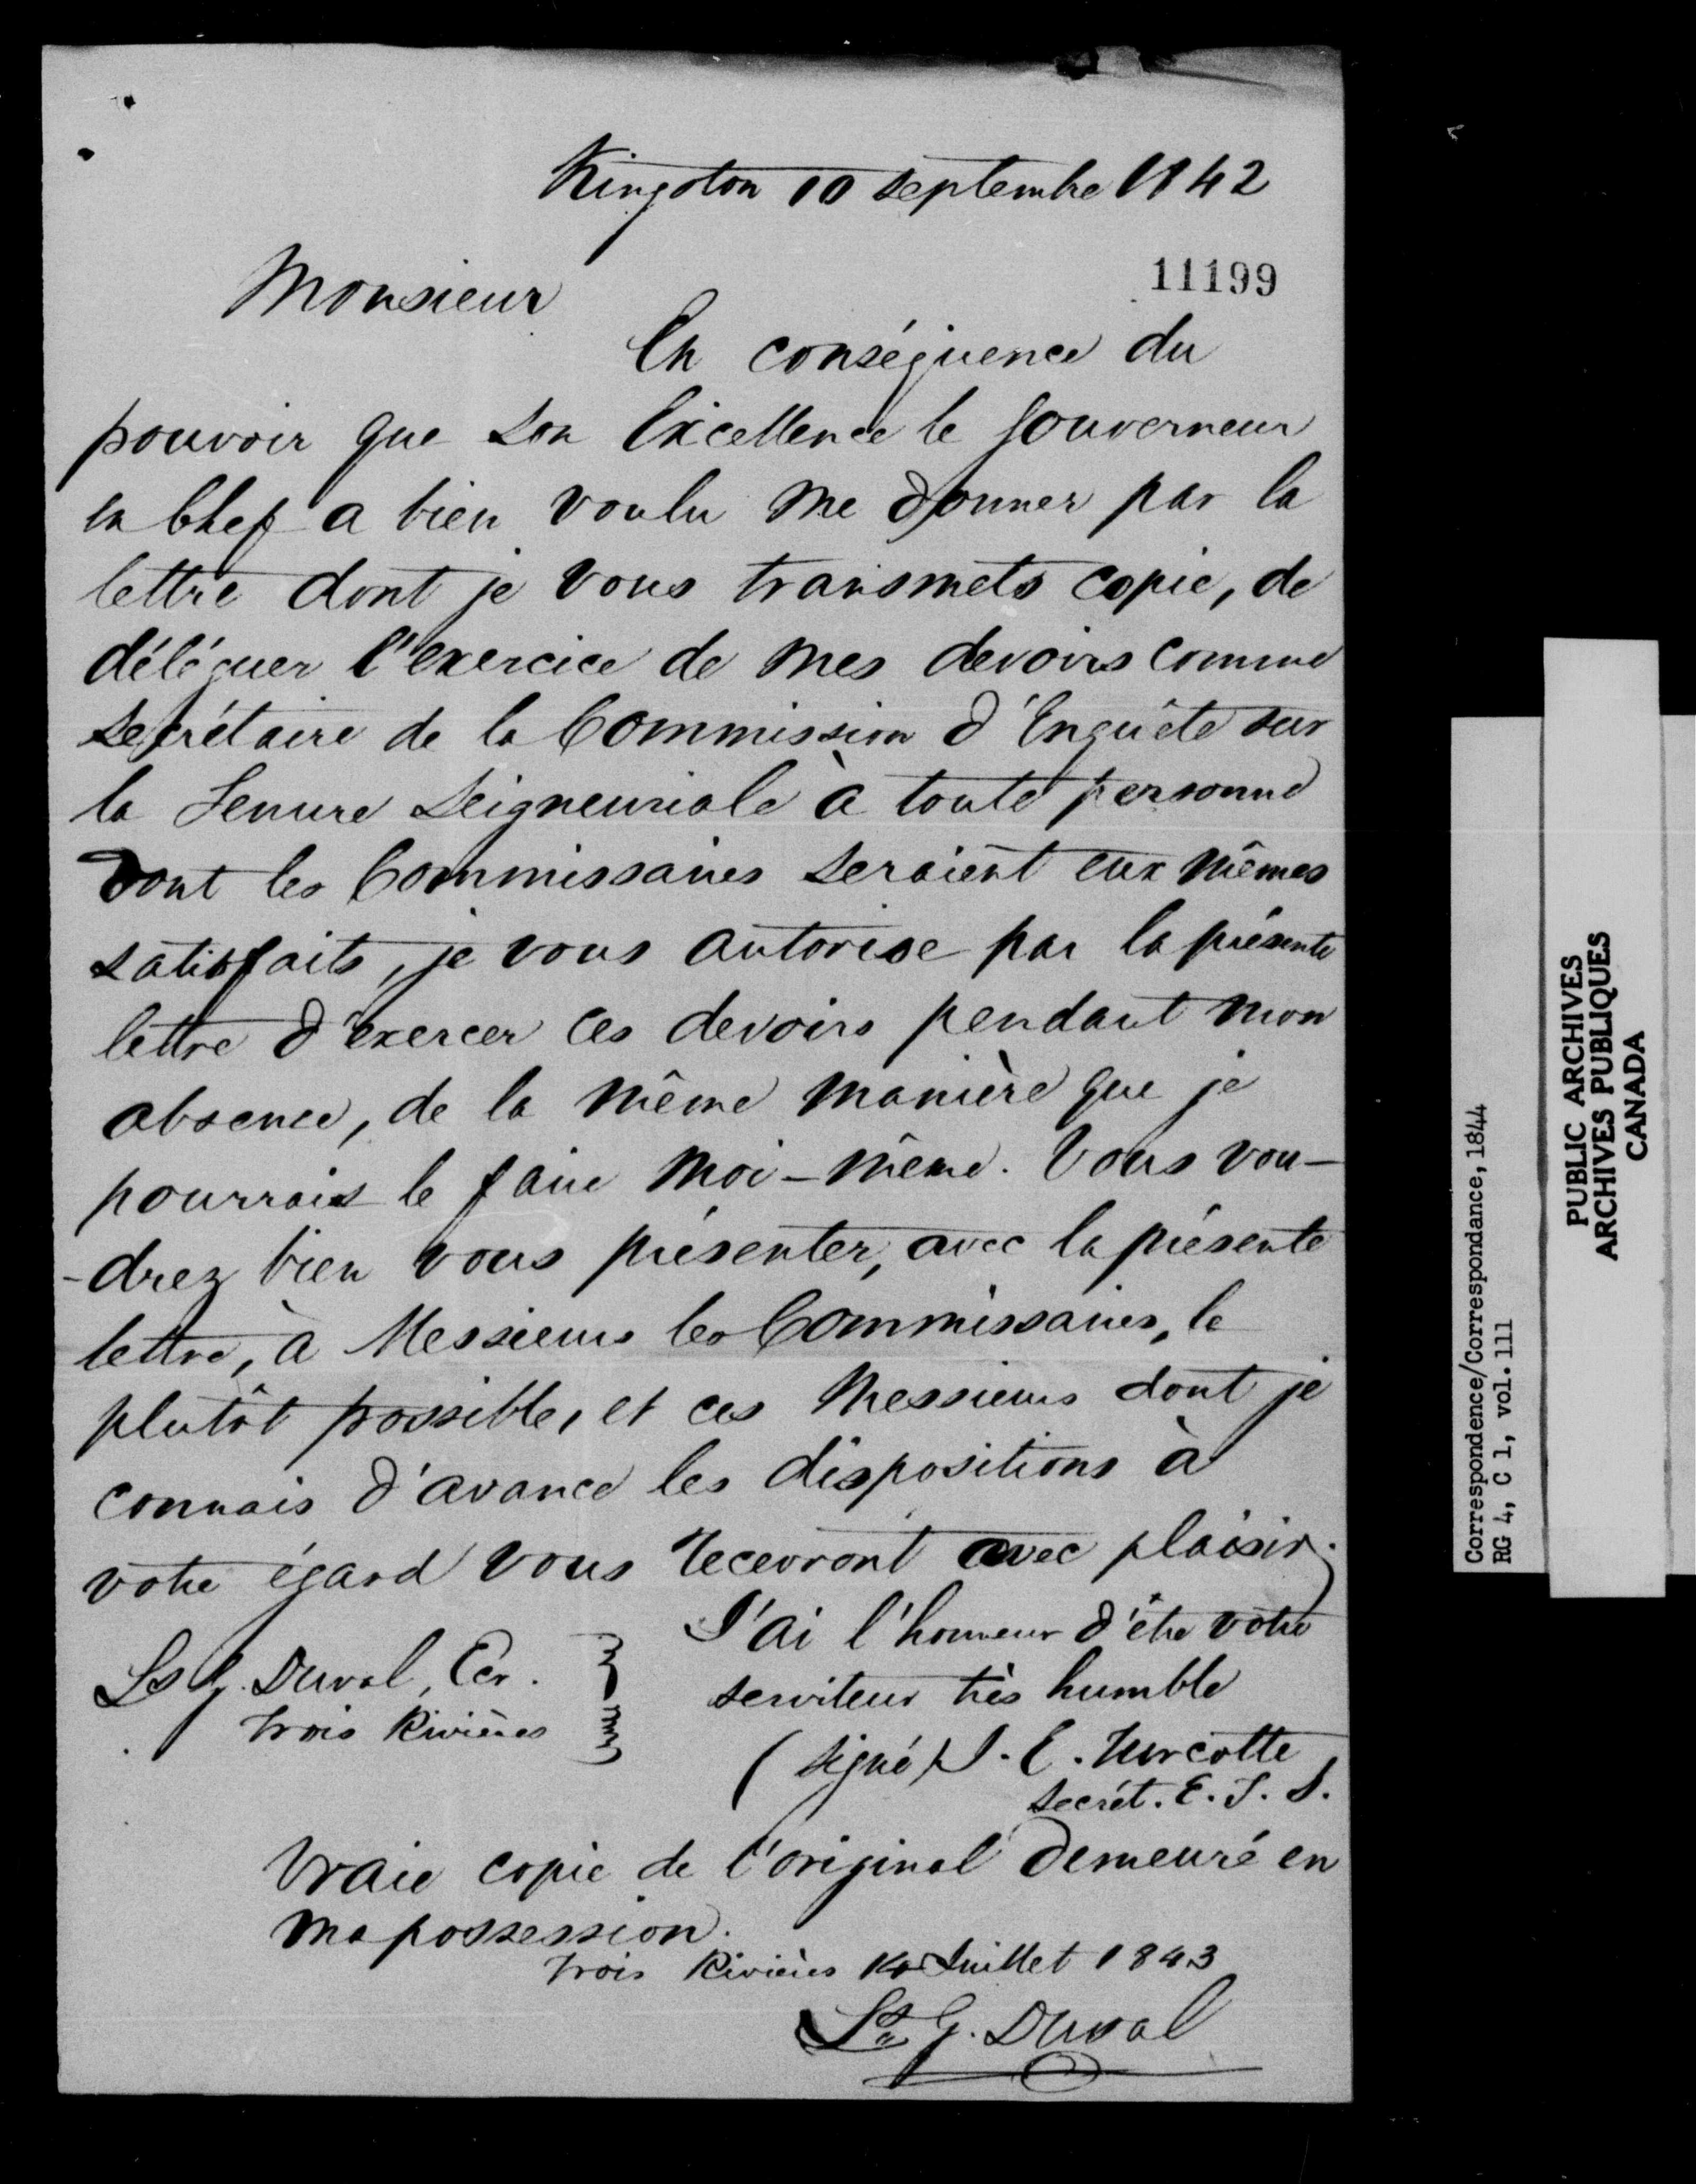 Kingston 10 Septembre 1842
11199
Monsieur
En conséquence du
pouvoir que Son Excellence le Gouverneur
en Chef a bien voulu me donner par la
lettre dont je vous transmets copie, de
déléguer l'exercice de mes devoirs comme
Secrétaire de la Commission d'Enquête sur
la Tenure Seigneuriale à toute personne
dont les Commissaires seraient eux mêmes
satisfaits, je vous autorise par la présente
lettre d'exercer ces devoirs pendant mon
absence, de la même manière que je
pourrais le faire moi-même. Vous vou-
-drez bien vous présenter, avec la présente
lettre, à Messieurs les Commissaires, le
plutôt possible, et ces Messieurs dont je
connais d'avance les dispositions à
votre égard vous recevront avec plaisir.
J'ai l'honneur d'être votre
serviteur très humble
(signé) J. E. Turcotte
Secrét. E. T. S.
Ls G. Duval, Ecr.
Trois Rivières
Vraie copie de l'original demeuré en
ma possession.
Trois Rivières 14 Juillet 1843
Ls G. Duval
Correspondence/Correspondance, 1844
RG 4, C 1, vol. 111
PUBLIC ARCHIVES
ARCHIVES PUBLIQUES
CANADA